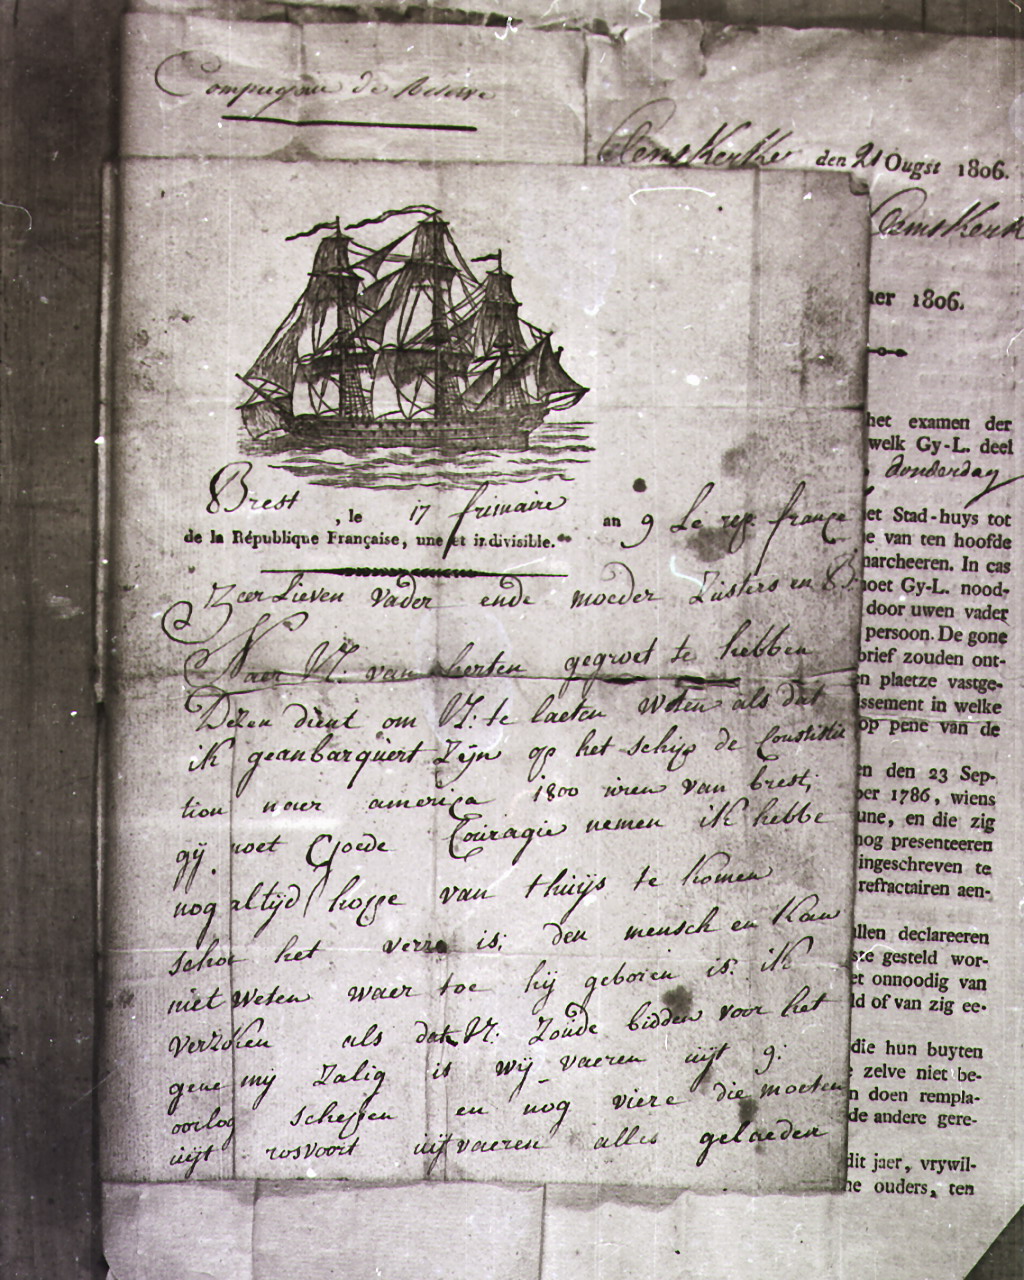 Compagnie de Reserve
Clemskerke den 21 Ougst 1806.
Clemskerk
er 1806.
het examen der
welk Gy-L. deel
donderdag
et Stad-huys tot
e van ten hoofde
marcheeren. In cas
moet Gy-L. nood-
door uwen vader
persoon. De gone
brief zouden ont-
en plaetze vastge-
issement in welke
op pene van de
en den 23 Sep-
ber 1786, wiens
une, en die zig
nog presenteeren
ingeschreven te
refractairen aen-
llen declareeren
gesteld wor-
et onnoodig van
ld of van zig ee-
die hun buyten
zelve niet be-
n doen rempla-
de andere gere-
dit jaer, vrywil-
ne ouders, ten
Brest, le 17 frimaire an 9 Le rep. france
de la République Française, une et indivisible.
Zeer Lieven vader ende moeder Zusters en B
Naer V: van herten gegroet te hebben
Dezen dient om V: te laeten weten als dat
ik geanbarquert Zijn op het schip de Constitu
tion naer america 1800 uren van brest,
gij moet Goede Couragie nemen ik hebbe
nog altijd hoppe van thuijs te komen
schoe het verre is, den mensch en kan
niet weten waer toe hij geboren is. ik
verzoken als dat V: Zoude bidden voor het
gene mij Zalig is wij vaeren uijt 9:
oorlog scheppen en nog viere die moeten
uijt rosvoort uijtvaeren alles gelaeden